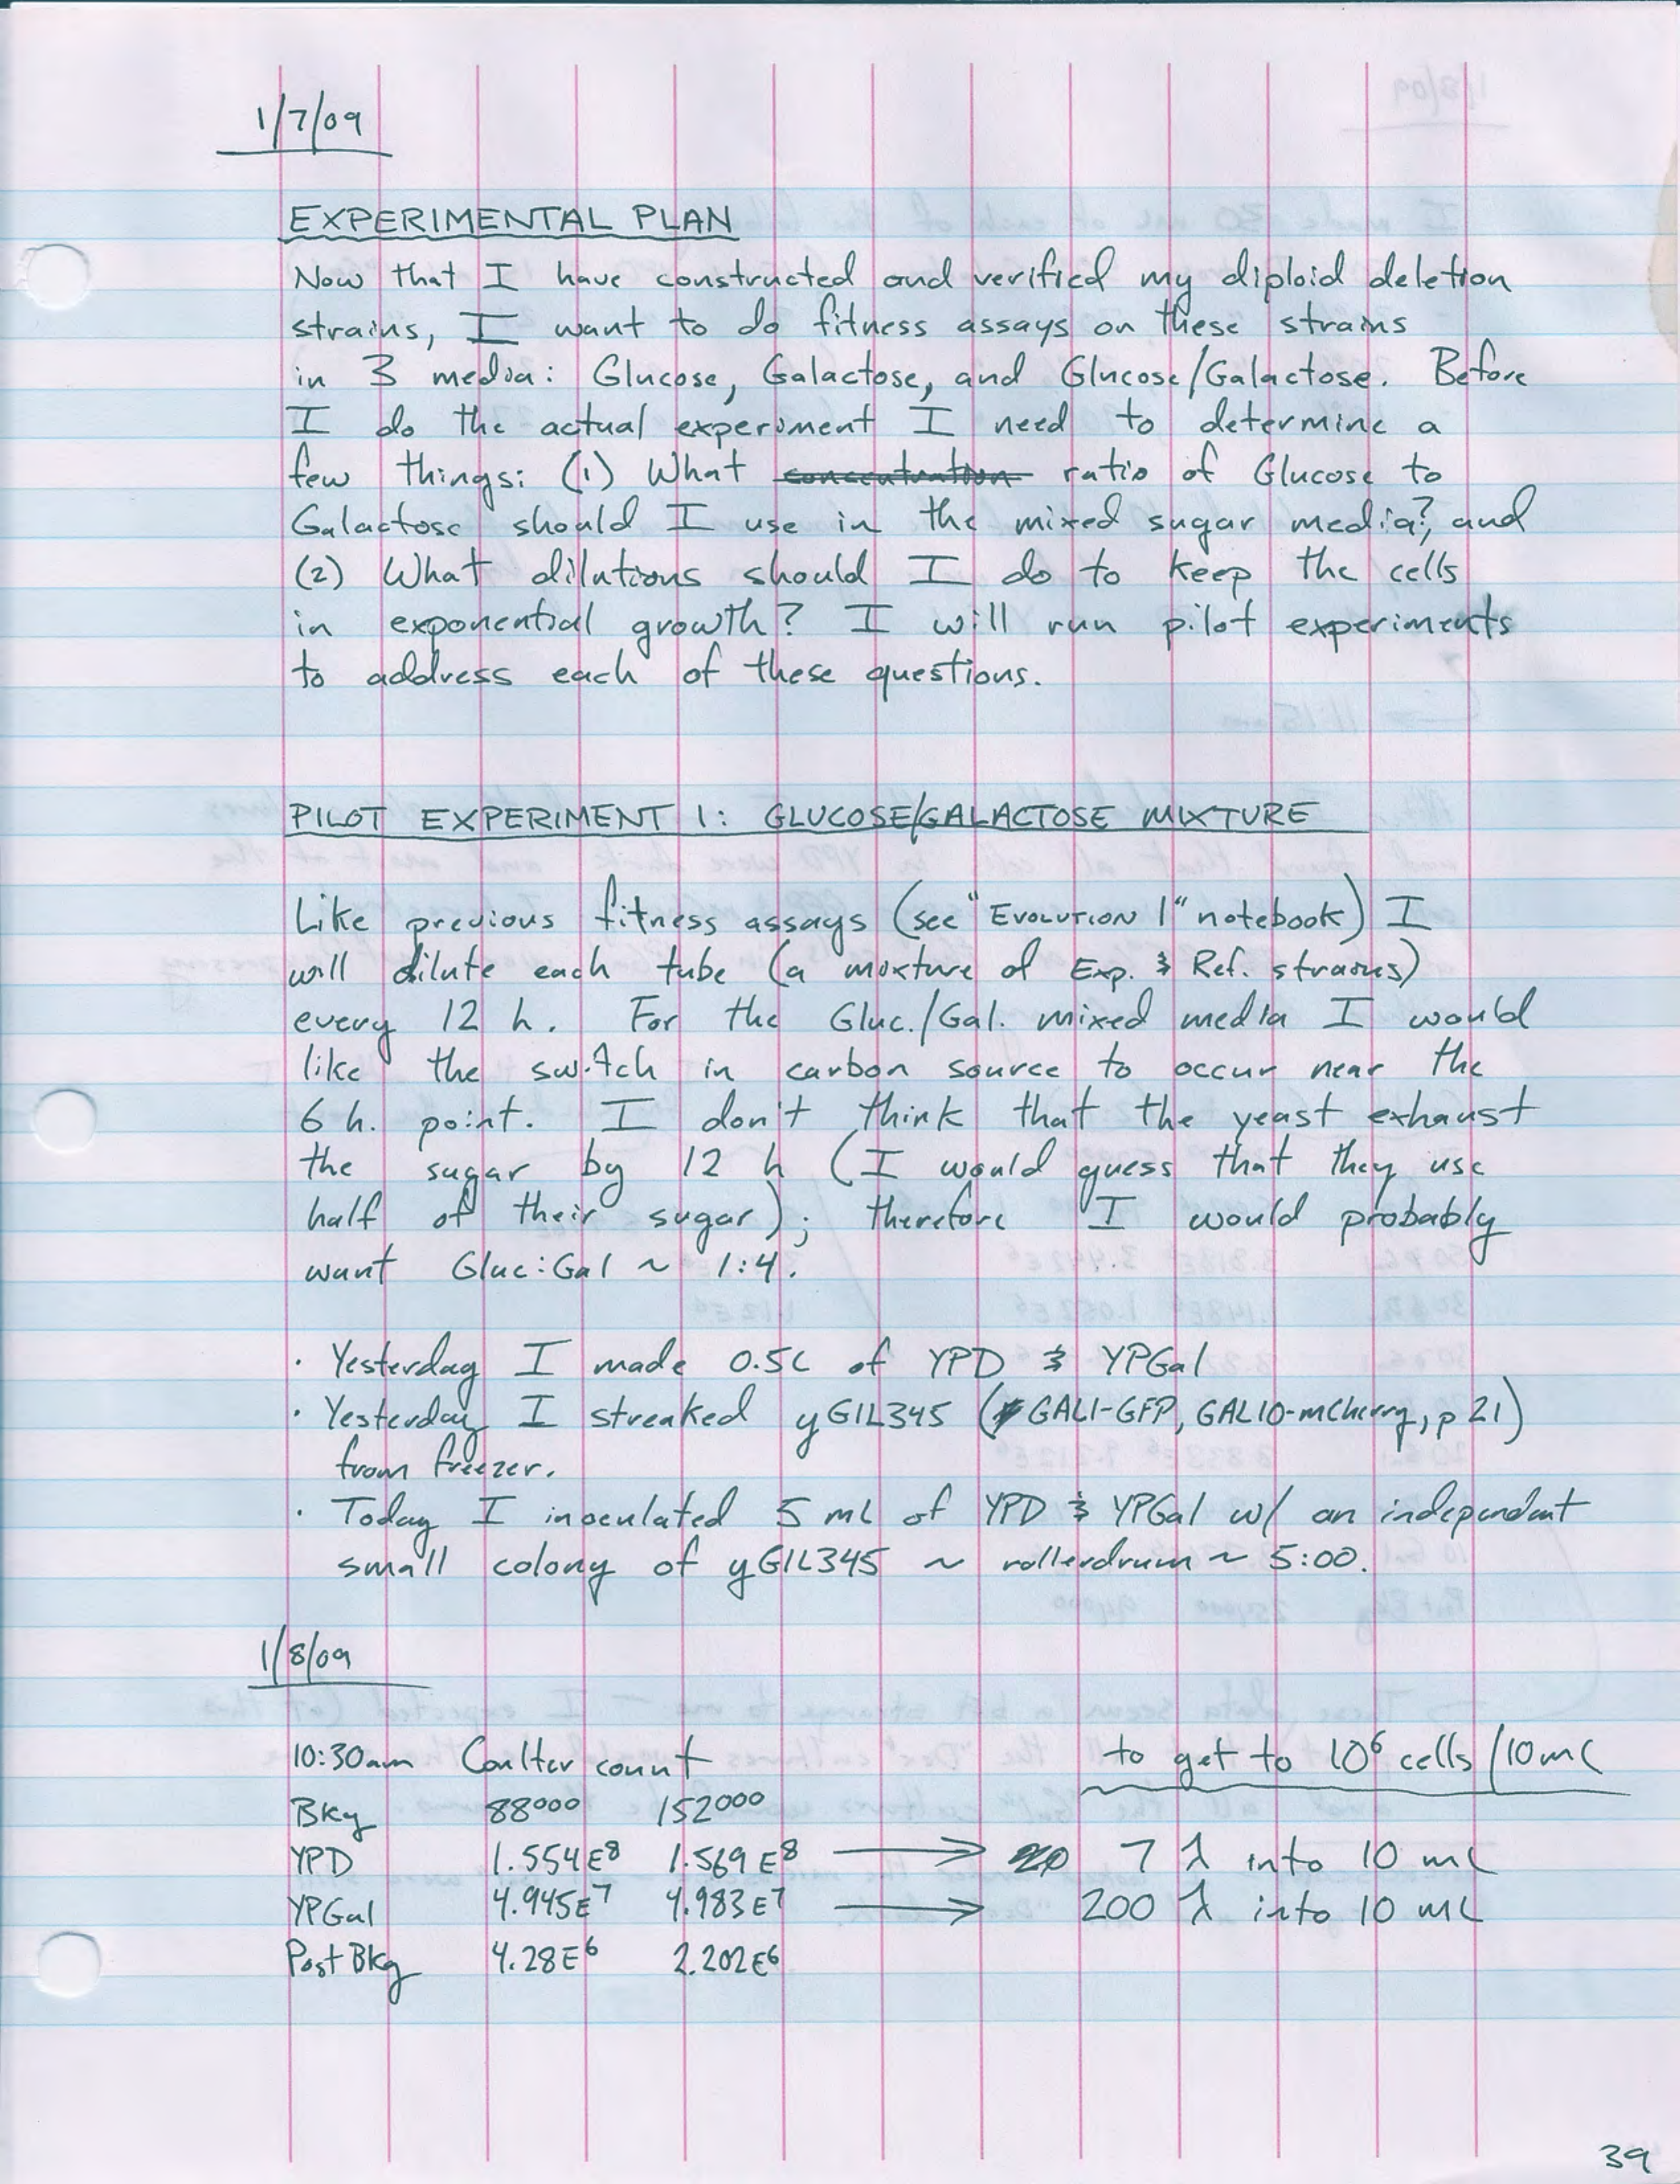 1/7/09
EXPERIMENTAL PLAN
Now that I have constructed and verified my diploid deletion
strains, I want to do fitness assays on these strains
in 3 media: Glucose, Galactose, and Glucose/Galactose. Before
I do the actual experiment I need to determine a
few things: (1) What concentration ratio of Glucose to
Galactose should I use in the mixed sugar media?, and
(2) What dilutions should I do to keep the cells
in exponential growth? I will run pilot experiments
to address each of these questions.
PILOT EXPERIMENT 1: GLUCOSE/GALACTOSE MIXTURE
Like previous fitness assays (see "EVOLUTION 1" notebook) I
will dilute each tube (a mixture of Exp. & Ref. strains)
every 12 h. For the Gluc./Gal. mixed media I would
like the switch in carbon source to occur near the
6 h. point. I don't think that the yeast exhaust
the sugar by 12 h (I would guess that they use
half of their sugar); therefore I would probably
want Gluc:Gal ~ 1:4.
· Yesterday I made 0.5L of YPD & YPGal
· Yesterday I streaked yGIL345 (GAL1-GFP, GAL10-mCherry, p 21)
from freezer.
· Today I inoculated 5 mL of YPD & YPGal w/ an independent
small colony of yGIL345 ~ rollerdrum ~ 5:00.
1/8/09
10:30am Coulter count to get to 10⁶ cells/10mL
Bkg 88000 152000
YPD 1.554E8 1.569E8 → 7 λ into 10 mL
YPGal 4.945E7 4.983E7 → 200 λ into 10 mL
Post Bkg 4.28E6 2.202E6
39